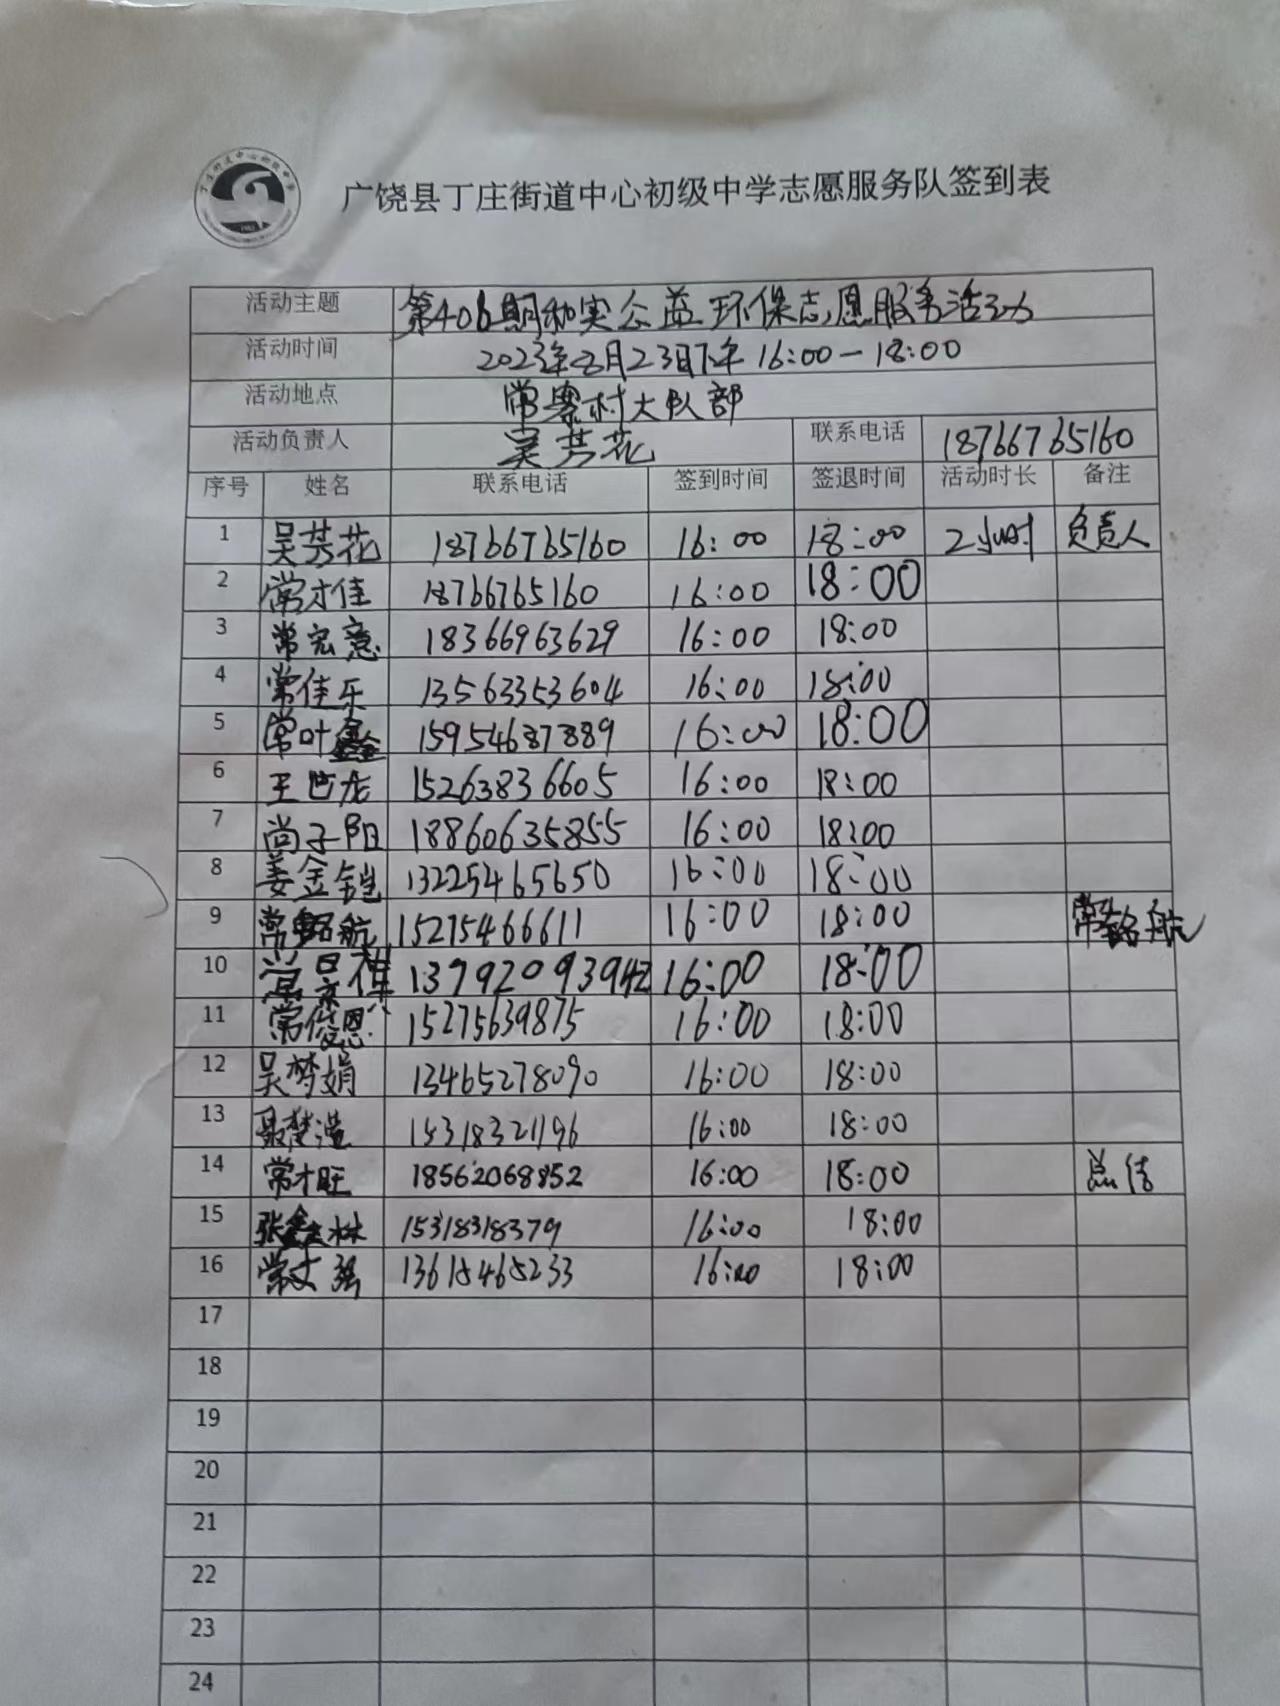 广饶县丁庄街道中心初级中学志愿服务队签到表
活动主题 第406期和实公益环保志愿服务活动
活动时间 2023年8月23日下午16:00—18:00
活动地点 常寨村大队部
活动负责人 吴芳花 联系电话 18766765160
序号 姓名 联系电话 签到时间 签退时间 活动时长 备注
1 吴芳花 18766765160 16:00 18:00 2小时 负责人
2 常才佳 18766765160 16:00 18:00
3 常宏意 18366963629 16:00 18:00
4 常佳乐 13563353604 16:00 18:00
5 常叶鑫 15954687889 16:00 18:00
6 王 龙 15263836605 16:00 18:00
7 尚子阳 18860635855 16:00 18:00
8 姜金铠 13225465650 16:00 18:00
9 常铭航 15275466611 16:00 18:00 常铭航
10 常景祺 13792093942 16:00 18:00
11 常俊恩 15275639875 16:00 18:00
12 吴梦娟 13465278090 16:00 18:00
13 聂梦 15318321196 16:00 18:00
14 常才旺 18562068852 16:00 18:00 总结
15 张鑫林 15318318379 16:00 18:00
16 常文强 13615465233 16:00 18:00
17
18
19
20
21
22
23
24